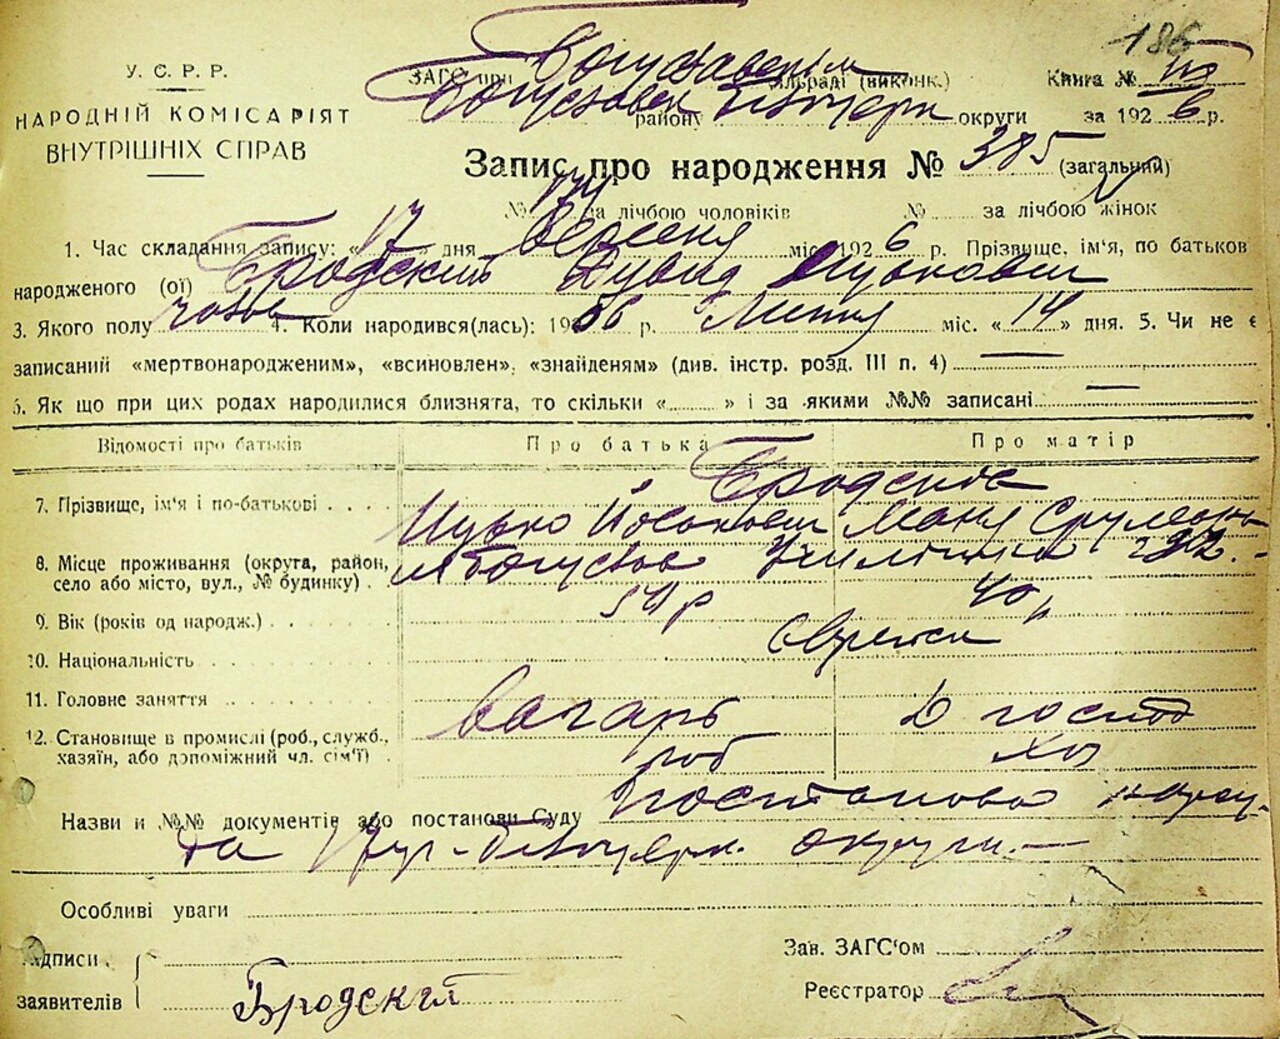 186
У. С. Р. Р.
НАРОДНІЙ КОМІСАРІЯТ
ВНУТРІШНІХ СПРАВ
ЗАГС при Богуславськім сільраді (виконк.) Книга №
Богуславськ району Білоцерк округи за 1926 р.
Запис про народження № 385 (загальний)
№ 174 за лічбою чоловіків № за лічбою жінок
1. Час складання запису: «17» дня Вересня міс. 1926 р. Прізвище, ім'я, по батьков
народженого (ої) Бродский Дувид Ицькович
3. Якого полу чолов 4. Коли народився(лась): 19 р. Липня міс. «14» дня. 5. Чи не є
записаний «мертвонародженим», «всиновлен», «знайденям» (див. інстр. розд. III п. 4)
6. Як що при цих родах народилися близнята, то скільки « » і за якими №№ записані
Відомості про батьків Про батька Про матір
7. Прізвище, ім'я і по-батькові Бродські
Ицько Йосипович Маня Срулевна
8. Місце проживання (округа, район, село або місто, вул., № будинку) м Богуслав
9. Вік (років од народж.) 54 р 40 р
10. Національність Євреи
11. Головне заняття вагарь Д господ
12. Становище в промислі (роб., служб., хазяїн, або допоміжний чл. сім'ї) роб хоз
Назви и №№ документів або постанови Суду Постанова нарсу-
да Білоцерк. округи.—
Особливі уваги
Підписи заявителів Бродский
Зав. ЗАГС'ом
Реєстратор